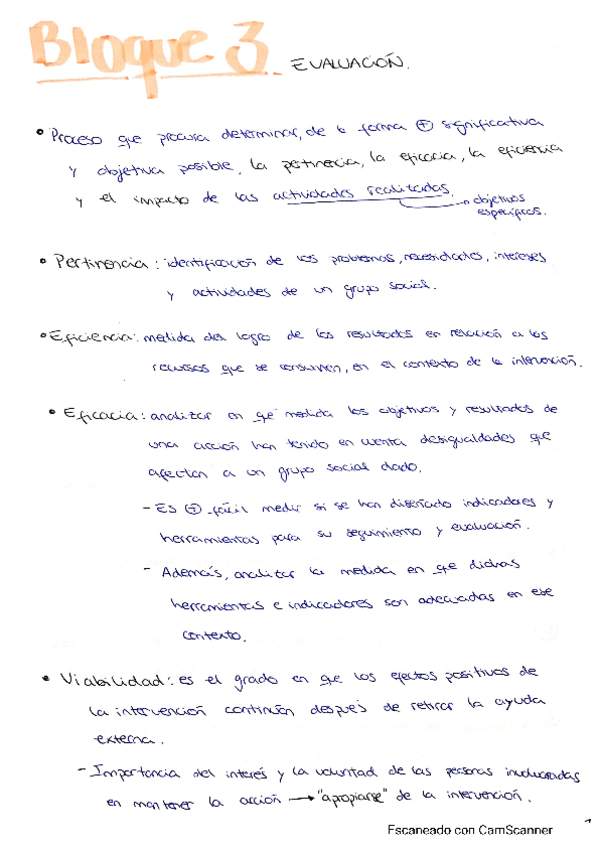 Bloque 3 EVALUACIÓN.
• Proceso que procura determinar, de la forma ⊕ significativa
y objetiva posible, la pertinencia, la eficacia, la eficiencia
y el impacto de las actividades realizadas.
→ objetivos
específicos.
• Pertinencia: identificación de los problemas, necesidades, intereses
y actividades de un grupo social.
• Eficiencia: medida del logro de los resultados en relación a los
recursos que se consumen, en el contexto de la intervención.
• Eficacia: analizar en qé medida los objetivos y resultados de
una acción han tenido en cuenta desigualdades que
afectan a un grupo social dado.
- Es ⊕ fácil medir si se han diseñado indicadores y
herramientas para su seguimiento y evaluación.
- Además, analizar la medida en qe dichas
herramientas e indicadores son adecuadas en ese
contexto.
• Viabilidad: es el grado en qe los efectos positivos de
la intervención continún después de retirar la ayuda
externa.
- Importancia del interés y la voluntad de las personas involucradas
en mantener la acción → "apropiarse" de la intervención.
Escaneado con CamScanner